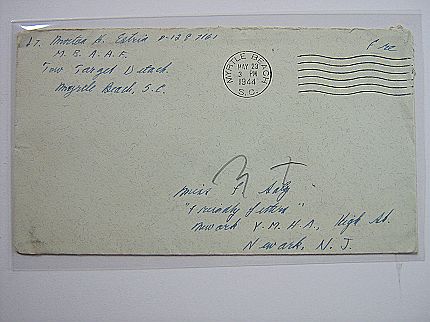 Lt. H. 0-1397161
M. B. A. A. F.
Tow Target Detach.
Myrtle Beach, S.C.
MYRTLE BEACH
MAY 23
3 PM
1944
S.C.
Free
Miss F.
"Friendly
Newark Y.M.H.A., High St.
Newark, N. J.